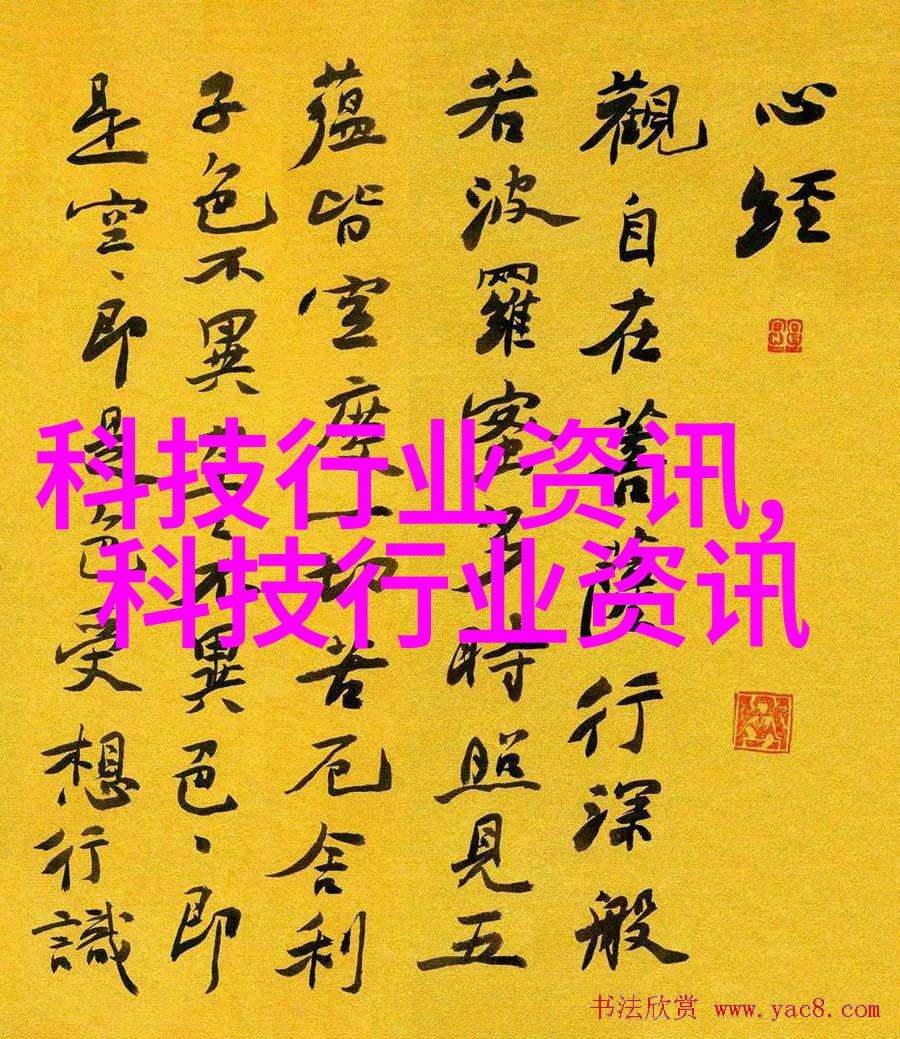 心經
觀自在菩薩行深般
若波羅蜜多時照見五
蘊皆空度一切苦厄舍利
子色不異空、不異色、即
是空、即是色受想行識
科技行业资讯,
科技行业资讯
书法欣赏 www.yac8.com